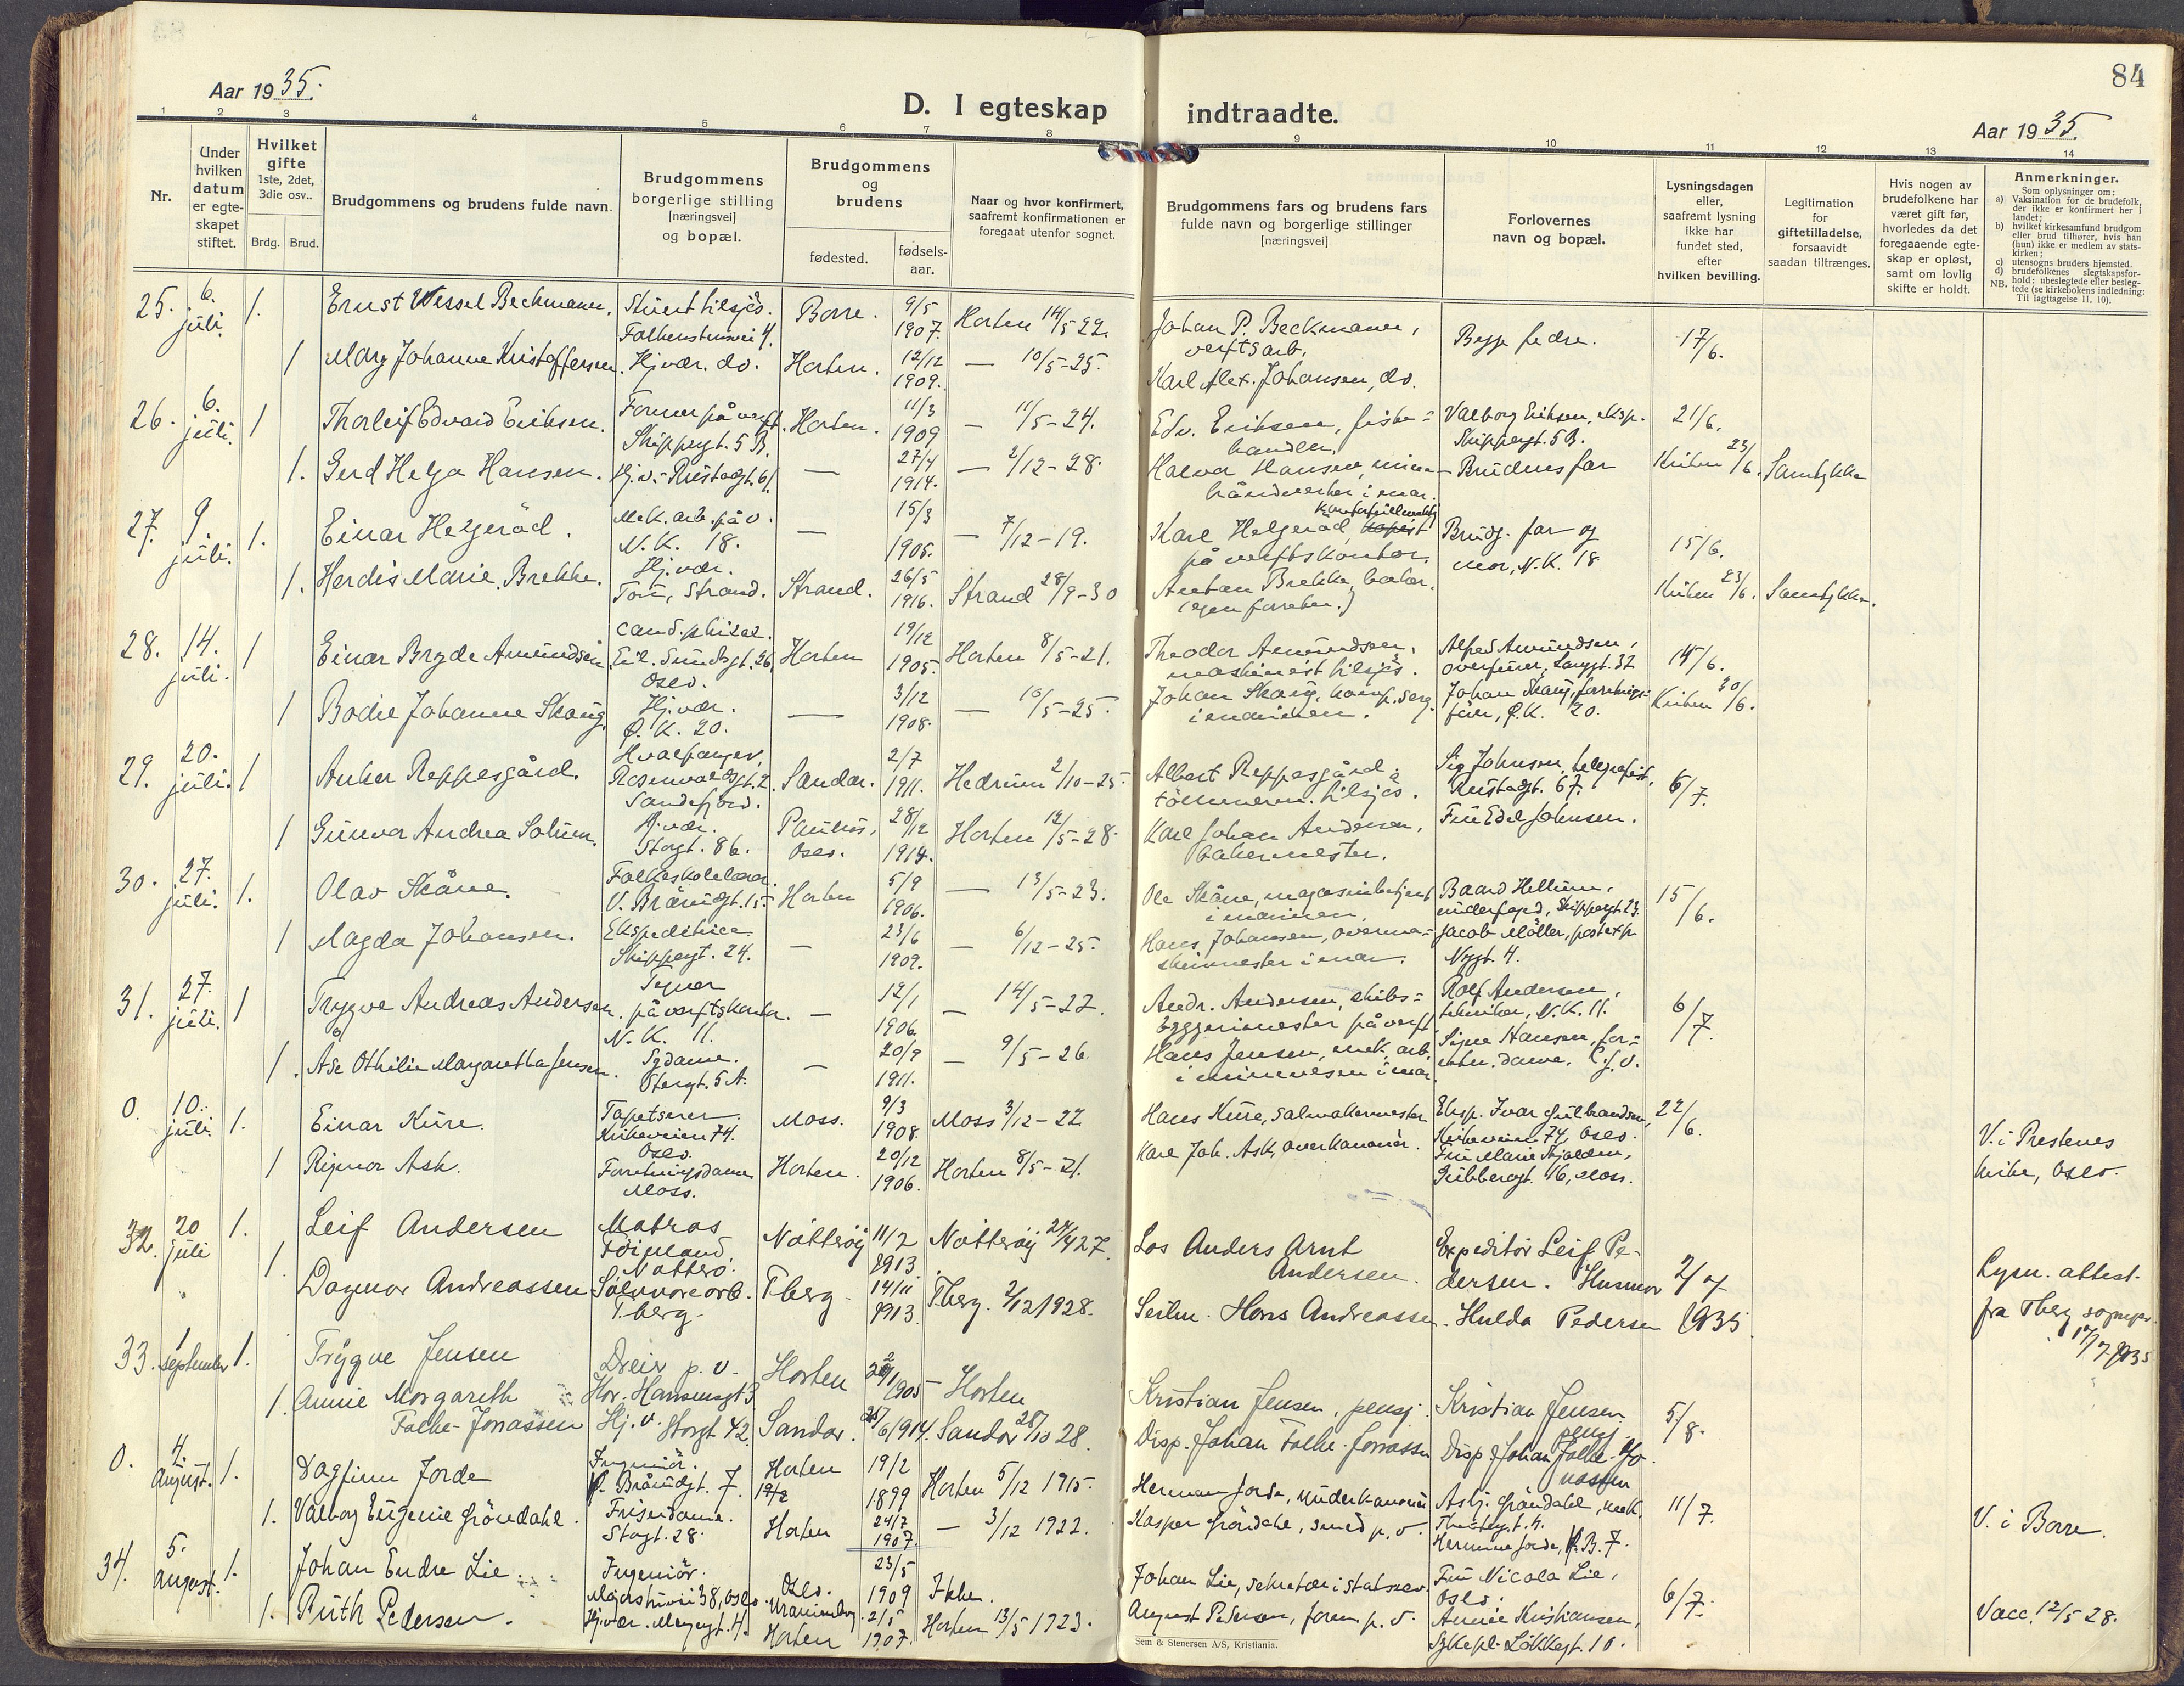 84
Aar 1935.
D. I egteskap indtraadte.
Aar 1935.
1 2 3 4 5 6 7 8 9 10 11 12 13 14
Nr.
Under
hvilken
datum
er egte-
skapet
stiftet.
Hvilket
gifte
1ste, 2det,
3die osv..
Brdg. Brud.
Brudgommens og brudens fulde navn.
Brudgommens
borgerlige stilling
[næringsvei]
og bopæl.
Brudgommens
og
brudens
fødested.
fødsels-
aar.
Naar og hvor konfirmert,
saafremt konfirmationen er
foregaat utenfor sognet.
Brudgommens fars og brudens fars
fulde navn og borgerlige stillinger
[næringsvei]
Forlovernes
navn og bopæl.
Lysningsdagen
eller,
saafremt lysning
ikke har
fundet sted,
efter
hvilken bevilling.
Legitimation
for
giftetilladelse,
forsaavidt
saadan tiltrænges.
Hvis nogen av
brudefolkene har
været gift før,
hvorledes da det
foregaaende egte-
skap er opløst,
samt om lovlig
skifte er holdt.
Anmerkninger.
Som oplysninger om:
a) Vaksination for de brudefolk,
der ikke er konfirmert her i
landet;
b) hvilket kirkesamfund brudgom
eller brud tilhører, hvis han
(hun) ikke er medlem av stats-
kirken;
c) utensogns bruders hjemsted.
d) brudefolkenes slegtskapsfor-
hold: ubeslegtede eller besleg-
tede (se kirkebokens indledning:
NB. Til iagttagelse II, 10).
25. 6. juli. 1. Ernst Wessel Beckmann. Stuert tilsjøs. Falkenstensvei 4. Borre. 9/5 1907. Horten 14/5 22. Johan P. Beckmann, verftsarb. Begge fedre. 17/6.
1 Mary Johanne Kristoffersen. Hj.vær. do. Horten. 12/12 1909. — 10/5-25. Karl Alex. Johansen, do.
26. 6. juli. 1 Thorleif Edvard Eriksen. Former på verft. Skippergt. 5 B. Horten. 11/3 1909 — 11/5-24. Edv. Eriksen, fiske=handler. Valborg Eriksen, eksp. Skippergt. 5 B. 21/6.
1. Gerd Helga Hansen. Hj.v.- Rustadgt. 61. — 27/4 1914. — 2/12-28. Halvor Hansen, mine-håndverker i mar. Brudens far Kirken 23/6. Samtykke
27. 9. juli. 1. Einar Helgeröd. Mek. arb. på v. N. K. 18. — 15/3 1905. — 7/12-19. Karl Helgeröd, på verftskontor. Brudg. far og mor, N. K. 18 15/6.
1. Herdis Marie Brekke. Hj.vær. Tou, Strand. Strand. 26/5 1916. Strand 28/9-30 Anton Brekke, baker. (egen forretn.) Kirken 23/6. Samtykke.
28. 14. juli. 1 Einar Bryde Amundsen Cand. philol. Eil. Sundsgt. 26, Oslo. Horten 19/12 1905. Horten 8/5-21. Theodor Amundsen, maskinist tilsjøs. Alfred Amundsen, Langgt. 32 14/6.
1 Bodie Johanne Skaug Hj.vær. Ø. K. 20. — 3/12 1908. — 10/5-25. Johan Skaug, i marinen. Johan Skaug, Ø.K. 20. Kirken 30/6.
29. 20. juli. 1 Anker Reppesgård. Hvalfanger, Rosenvaldsgt. 2. Sandefjord. Sandar. 2/7 1911. Hedrum 2/10-25. Albert Reppesgård, tömmerm. tilsjøs. Sig Johnsen, telegrafist, Rustadgt. 67. 6/7.
1 Gunvor Andrea Solum. Hj.vær. Storgt. 86. Paulus, Oslo. 28/12 1914. Horten 12/5-28 Karl Johan Andersen, bakermester. Fru Edel Johnsen.
30. 27. juli. 1. Olav Skåne. Folkeskolelærer. V. Braarudgt. 15 Horten 5/9 1906. — 13/5-23. Ole Skåne, magasinbetjent i marinen. Baard Hellum, Skippergt. 23. 15/6.
1 Magda Johansen. Ekspeditrice Skippergt. 24. — 23/6 1909. — 6/12-25. Hans Johansen, overma=skinmester i mar. Jacob Möller, postexp. Nygt. 4.
31. 27. juli. 1 Trygve Andreas Andersen. Tegner på verftskontor. N. K. 11. — 12/1 1906. — 14/5-22. Andr. Andersen, skibs=byggerimester på verft Rolf Andersen, tekniker, N. K. 11. 6/7.
1. Åse Othilie Margaretha Jensen. Sydame. Storgt. 5 A. — 20/9 1911. — 9/5-26. Hans Jensen, mek. arb. i minevesen i mar. Signe Hansen,
0. 10. juli. 1. Einar Kure. Tapetserer. Kirkeveien 74. Oslo. Moss. 9/3 1908. Moss 3/12-22 Hans Kure, salmakermester Eksp. Ivar Gulbrandsen, Kirkeveien 74, Oslo. 22/6. V. i Prestenes kirke, Oslo.
1 Rigmor Ask. Forretningsdame Moss. Horten. 20/12 1906. Horten 8/5-21. Karl Joh. Ask, overkanonér. Fru Marie Mjølden, 46, Moss.
32. 20 juli 1. Leif Andersen Matros Föinland, Nötterö. Nötteröy 11/2 1913. Nötteröy 24/4 27. Los Anders Arnt Andersen. Expeditör Leif Pe-dersen. 2/7 1935. Lysn. attest. fra Tberg sognepr. 17/7 1935
1. Dagmar Andreassen Sölvvarearb. T.berg Tberg 14/11 1913. Tberg. 2/12 1928. Seilm. Hans Andreassen. Husmor Hulda Pedersen
33. 1 september 1. Trygve Jensen Dreier p. v. Hor. Hansensgt 3 Horten 1905 Horten Kristian Jensen, pensj. Kristian Jensen pensj. 5/8.
1. Annie Margareth Falke-Jonassen Hj. v. Storgt 42. Sandar. 1914. Sandar 28/10 28. Disp. Johan Falke-Jonassen Disp Johan Falke-Jo-nassen
0. 4. august. 1. Dagfinn Jorde Ingeniør. V. Bråruddgt. 7. Horten 19/2 1899 Horten 5/12 1915. Herman Jorde, underkanonér Asbj. Gröndahl, mek. 11/7. V. i Borre.
1. Valborg Eugenie Gröndahl. Frisørdame. Storgt. 28. Horten 24/7 1907. — 3/12 1922. Kasper Gröndahl, smed p. v. Hermine Jorde, V. B. 7.
34. 5. august. 1. Johan Endre Lie. Ingeniör. Majorstuvei 38, Oslo Oslo. Uranienborg. 23/5 1909 Ikke. Johan Lie, sekretær i Fru Nicola Lie, Oslo. 6/7. Vacc. 12/5 28.
1. Ruth Pedersen. Hj.vær. Horten 2/5 1907. Horten 13/5 1923. August Pedersen, form. p. v. Annie Kristiansen, Sykepl. Løkkegt. 10.
Sem & Stenersen A/S, Kristiania.